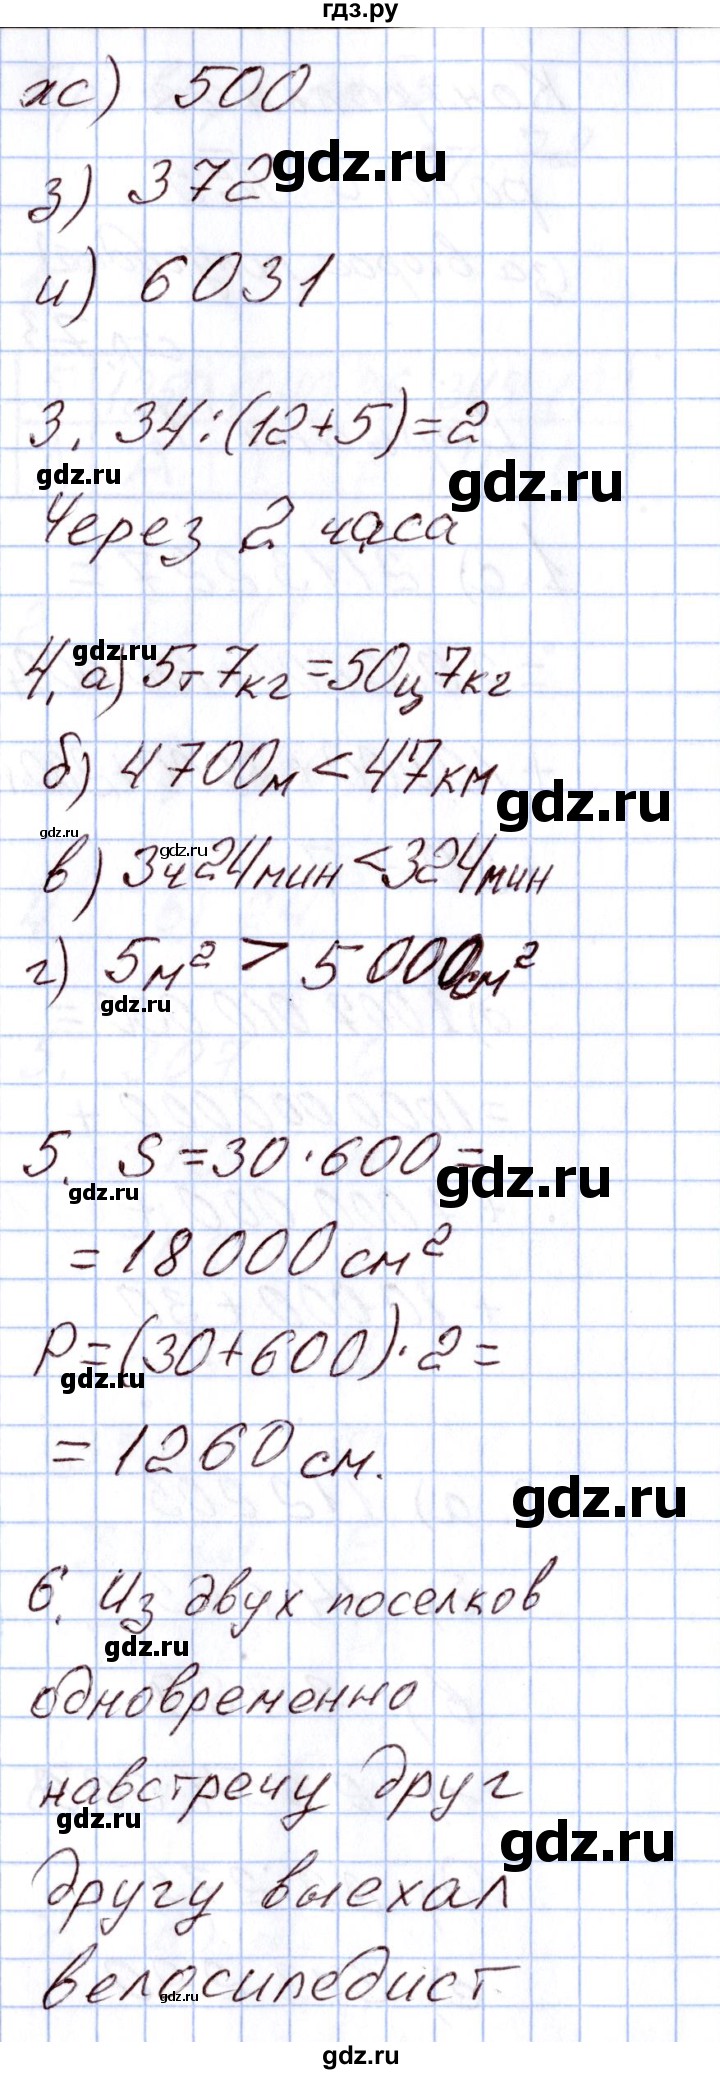 гдз.ру
ж) 500
gdz.ru
з) 372
и) 6031
3. 34:(12+5)=2
gdz.ru
gdz.ru
Через 2 часа
gdz.ru
4. а) 5т 7кг = 50ц 7кг
б) 4700м < 47км
gdz.ru
gdz.ru
gdz.ru
в) 3ч 24мин < 324мин
г) 5м² > 5000см²
gdz.ru
5. S = 30 · 600 =
gdz.ru
gdz.ru
= 18000 см²
P = (30+600) · 2 =
gdz.ru
= 1260 см.
gdz.ru
6. Из двух поселков
gdz.ru
одновременно
навстречу друг
gdz.ru
gdz.ru
другу выехал
велосипедист
gdz.ru
gdz.ru